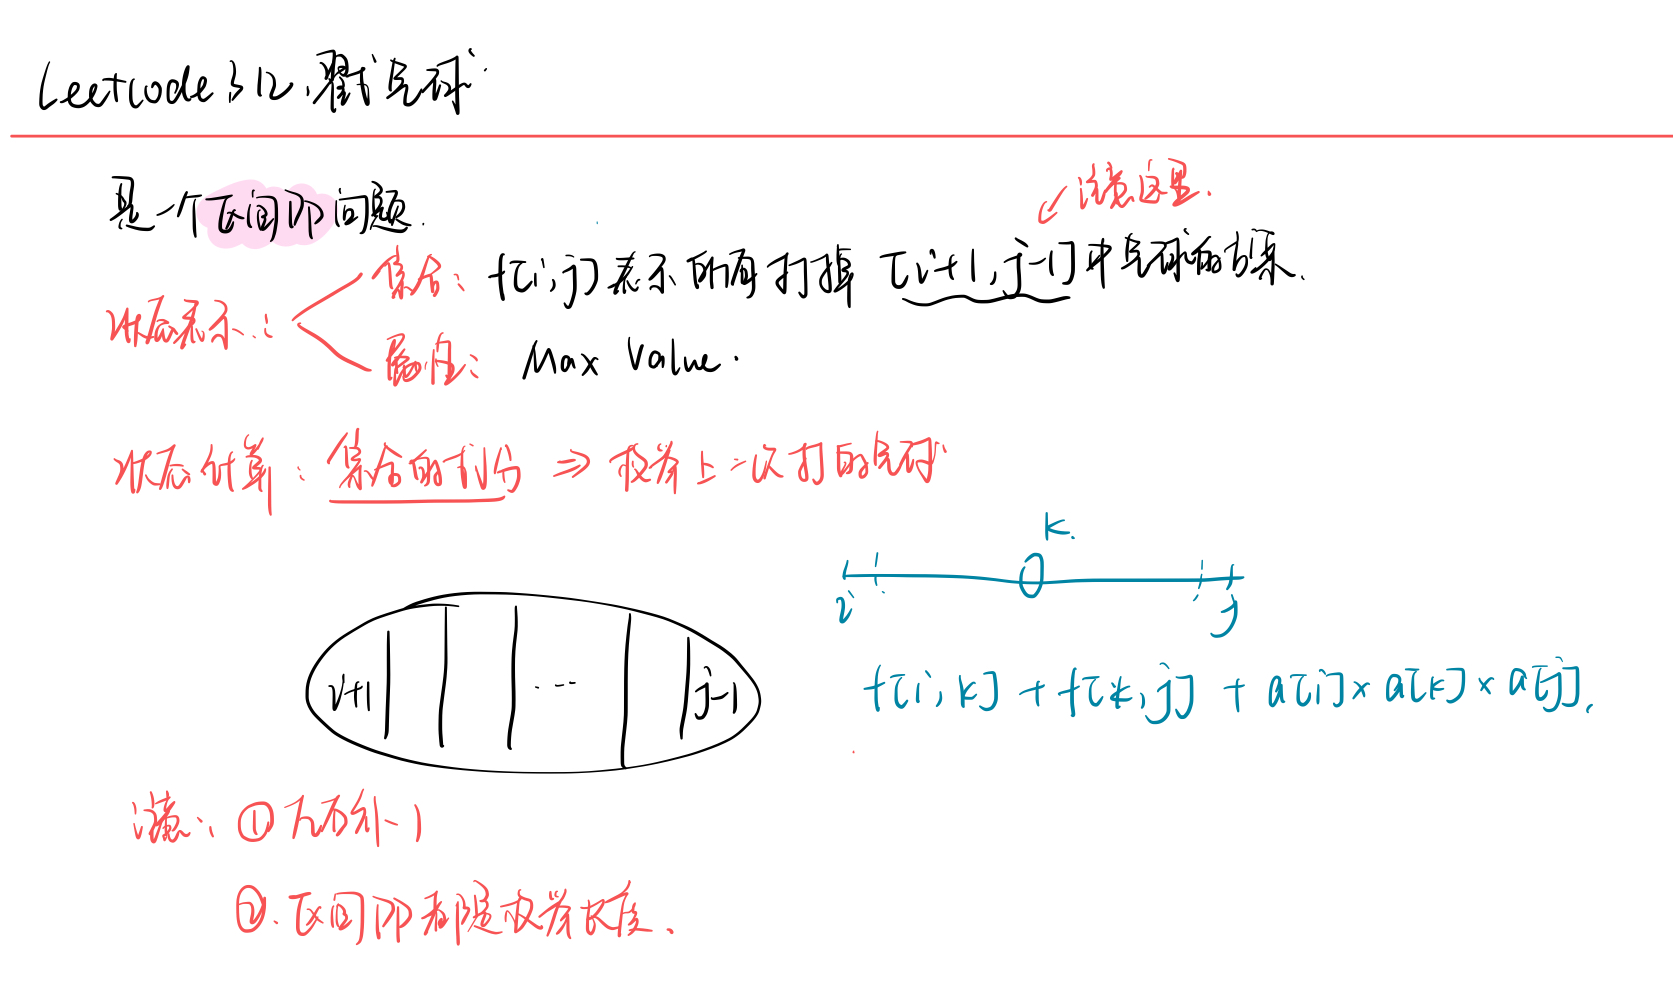 Leetcode 312. 戳气球
是一个区间DP问题.
↙ 注意这里.
状态表示:
集合: f[i,j] 表示所有打掉 [i+1, j-1] 中气球的方案.
属性: Max Value.
状态计算: 集合的划分 ⇒ 枚举上一次打的气球
k.
i j
i+1 ... j-1
f[i,k] + f[k,j] + a[i] × a[k] × a[j].
注意: ① 左右补 1
②. 区间DP都是枚举长度.